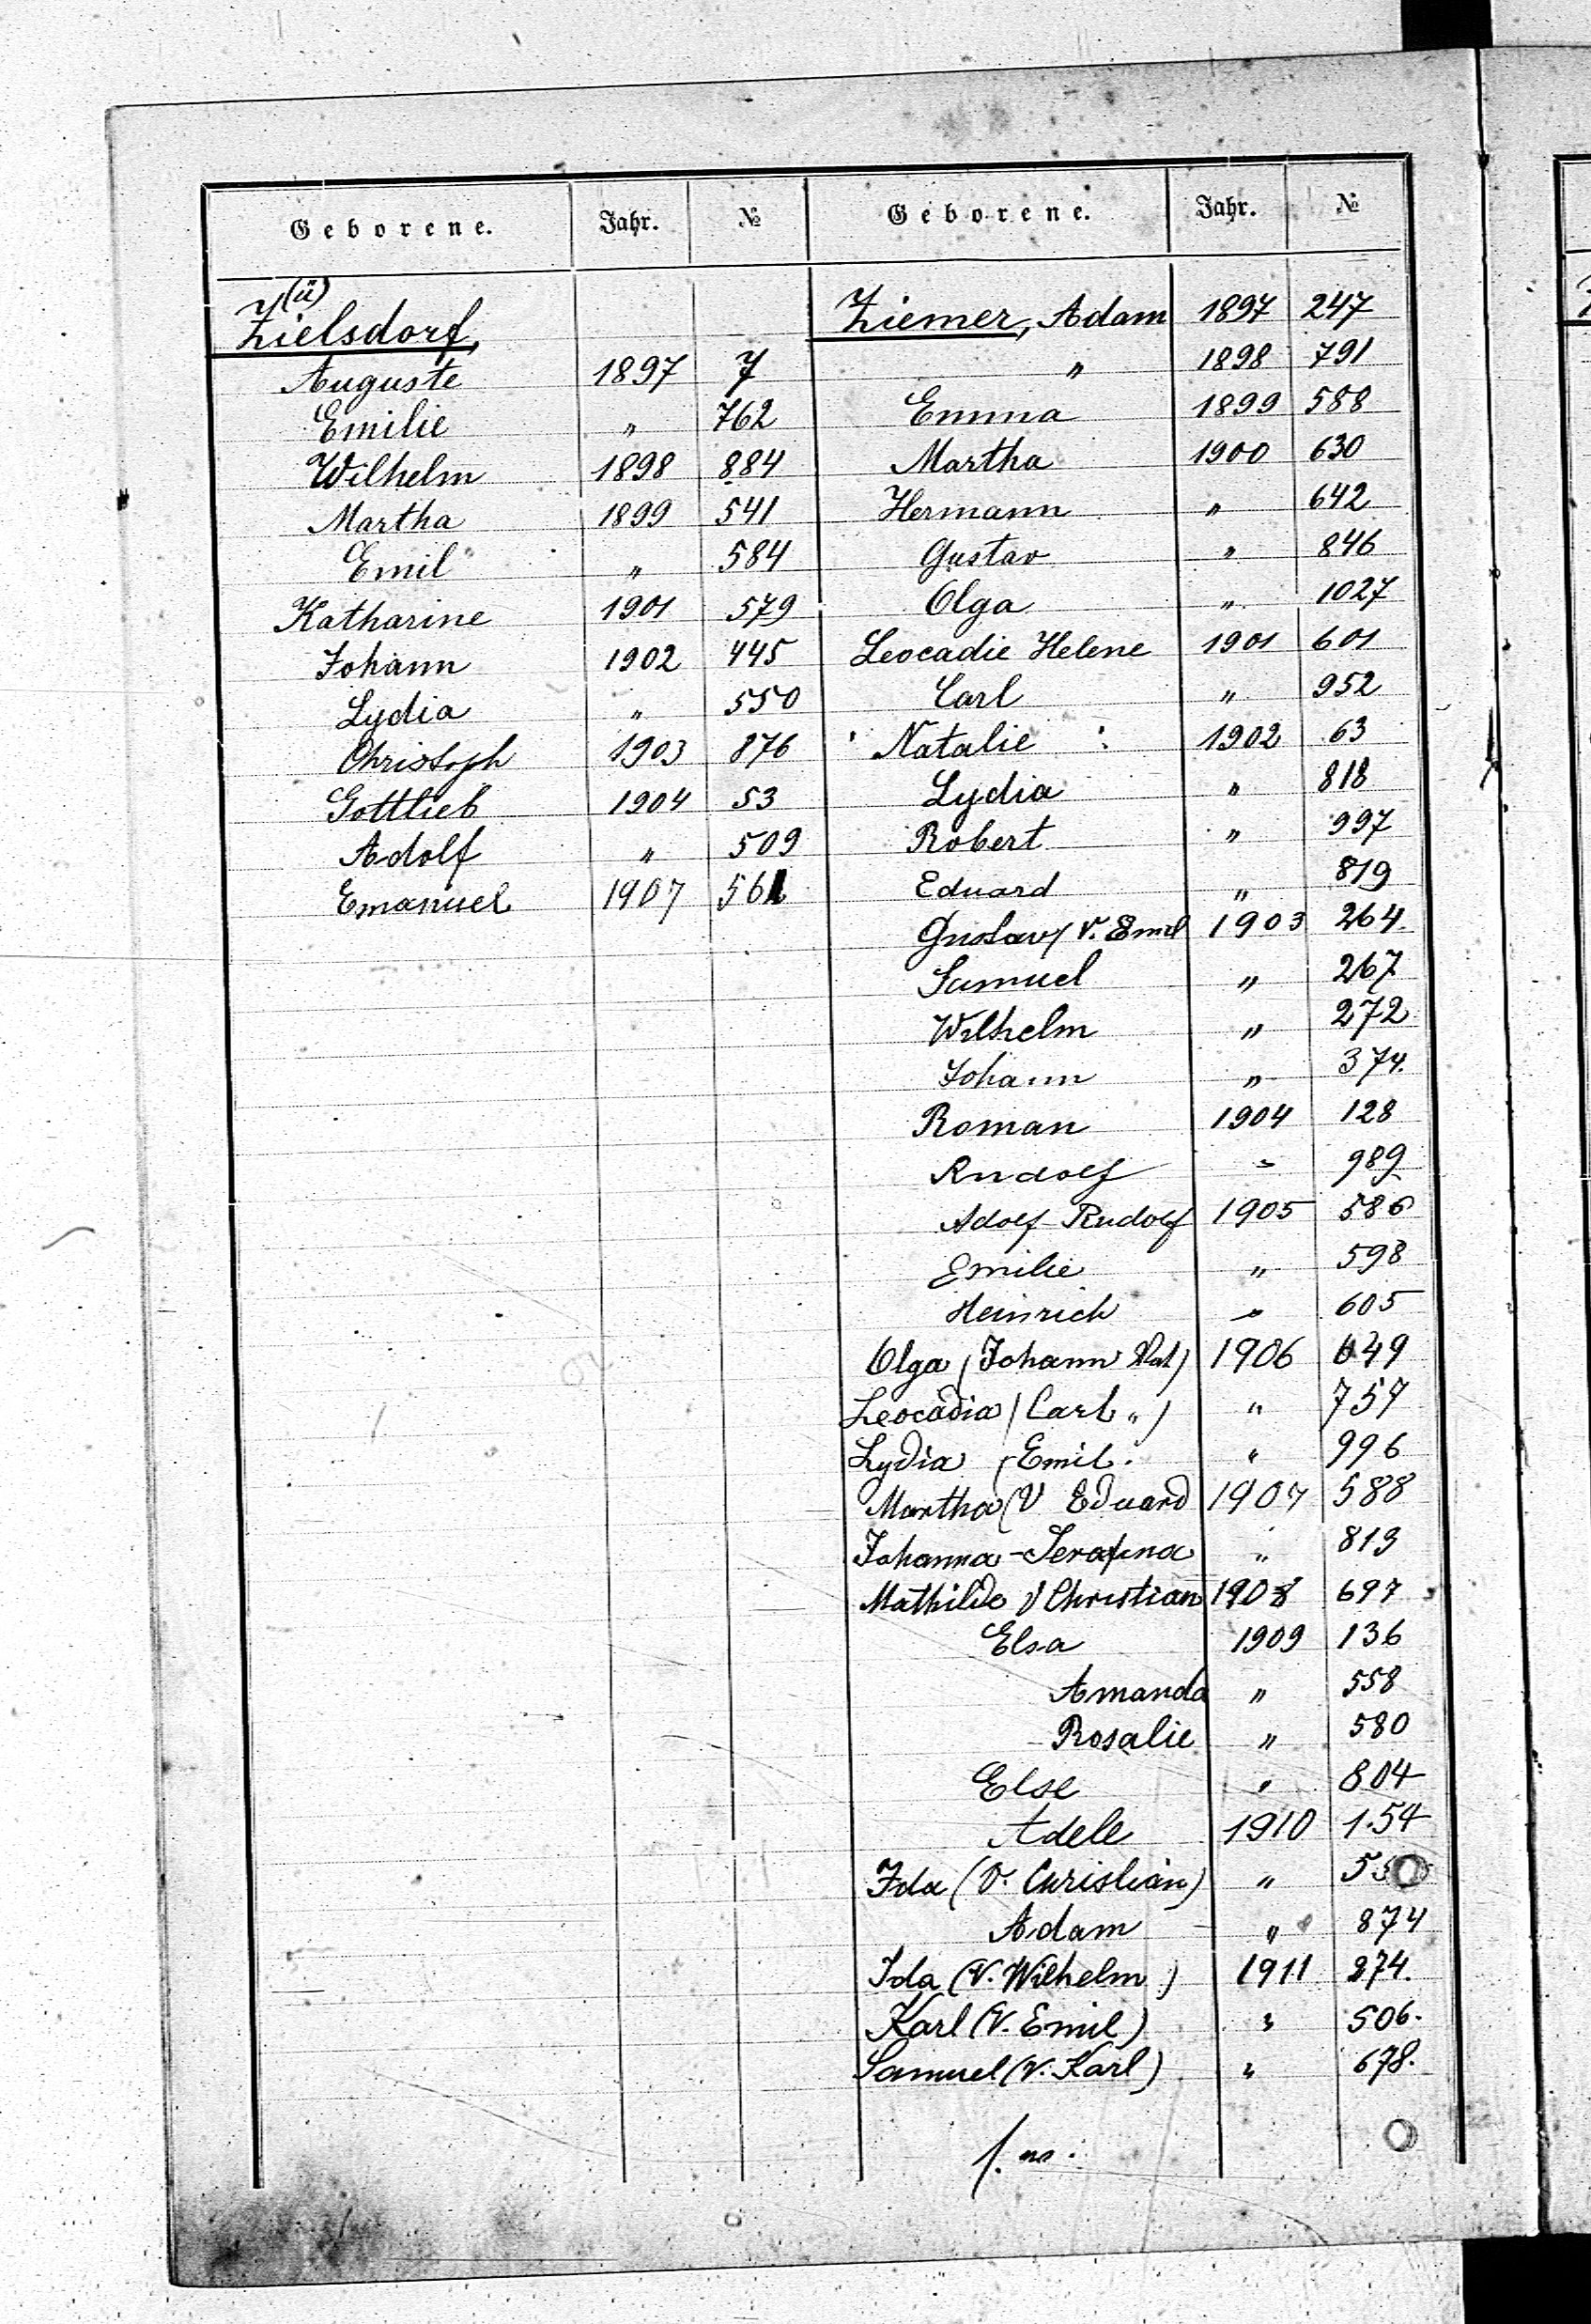 Geborene. Jahr. №
(ü)
Zielsdorf,
Auguste 1897 7
Emilie " 762
Wilhelm 1898 884
Martha 1899 541
Emil " 584
Katharine 1901 579
Johann 1902 445
Lydia " 550
Christoph 1903 876
Gottlieb 1904 53
Adolf " 509
Emanuel 1907 561
Geborene. Jahr. №
Ziemer, Adam 1897 247
" 1898 791
Emma 1899 588
Martha 1900 630
Hermann " 642
Gustav " 846
Olga " 1027
Leocadie Helene 1901 601
Carl " 952
Natalie 1902 63
Lydia " 818
Robert " 997
Eduard " 819
Gustav / V. Emil 1903 264.
Samuel " 267
Wilhelm " 272
Johann " 374.
Roman 1904 128
Rudolf " 989
Adolf-Rudolf 1905 586
Emilie " 598
Heinrich " 605
Olga (Johann Vat) 1906 649
Leocadia (Carl ") " 757
Lydia (Emil " 996
Martha (V Eduard 1907 588
Johanna-Serafina " 819
Mathilde V Christian 1908 697
Elsa 1909 136
Amanda " 558
Rosalie " 580
Else " 804
Adele 1910 154
Ida (V. Christian) "
Adam " 874
Ida (V. Wilhelm) 1911 274.
Karl (V. Emil) " 506.
Samuel (V. Karl) " 678.